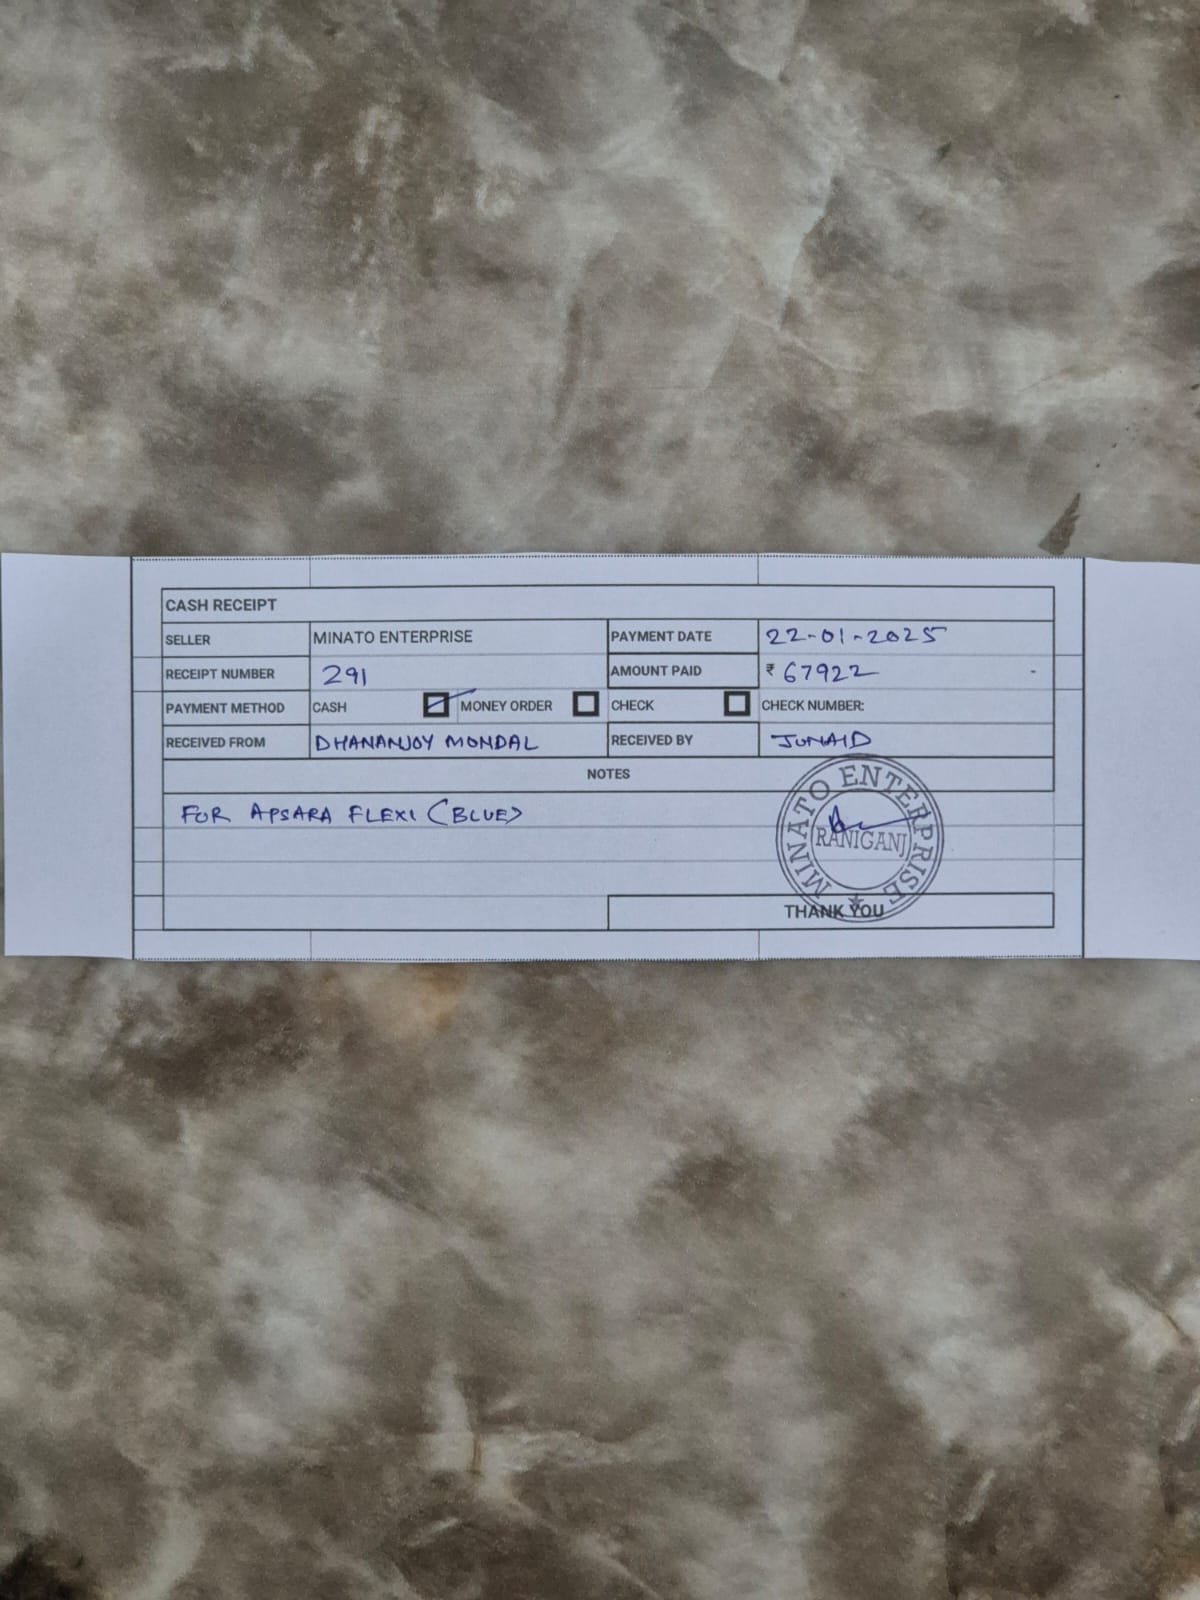 CASH RECEIPT
SELLER MINATO ENTERPRISE PAYMENT DATE 22-01-2025
RECEIPT NUMBER 291 AMOUNT PAID ₹ 67922
PAYMENT METHOD CASH MONEY ORDER CHECK CHECK NUMBER:
RECEIVED FROM DHANANJOY MONDAL RECEIVED BY JUNAID
NOTES
FOR APSARA FLEXI (BLUE)
MINATO ENTERPRISE
RANIGANJ
THANK YOU